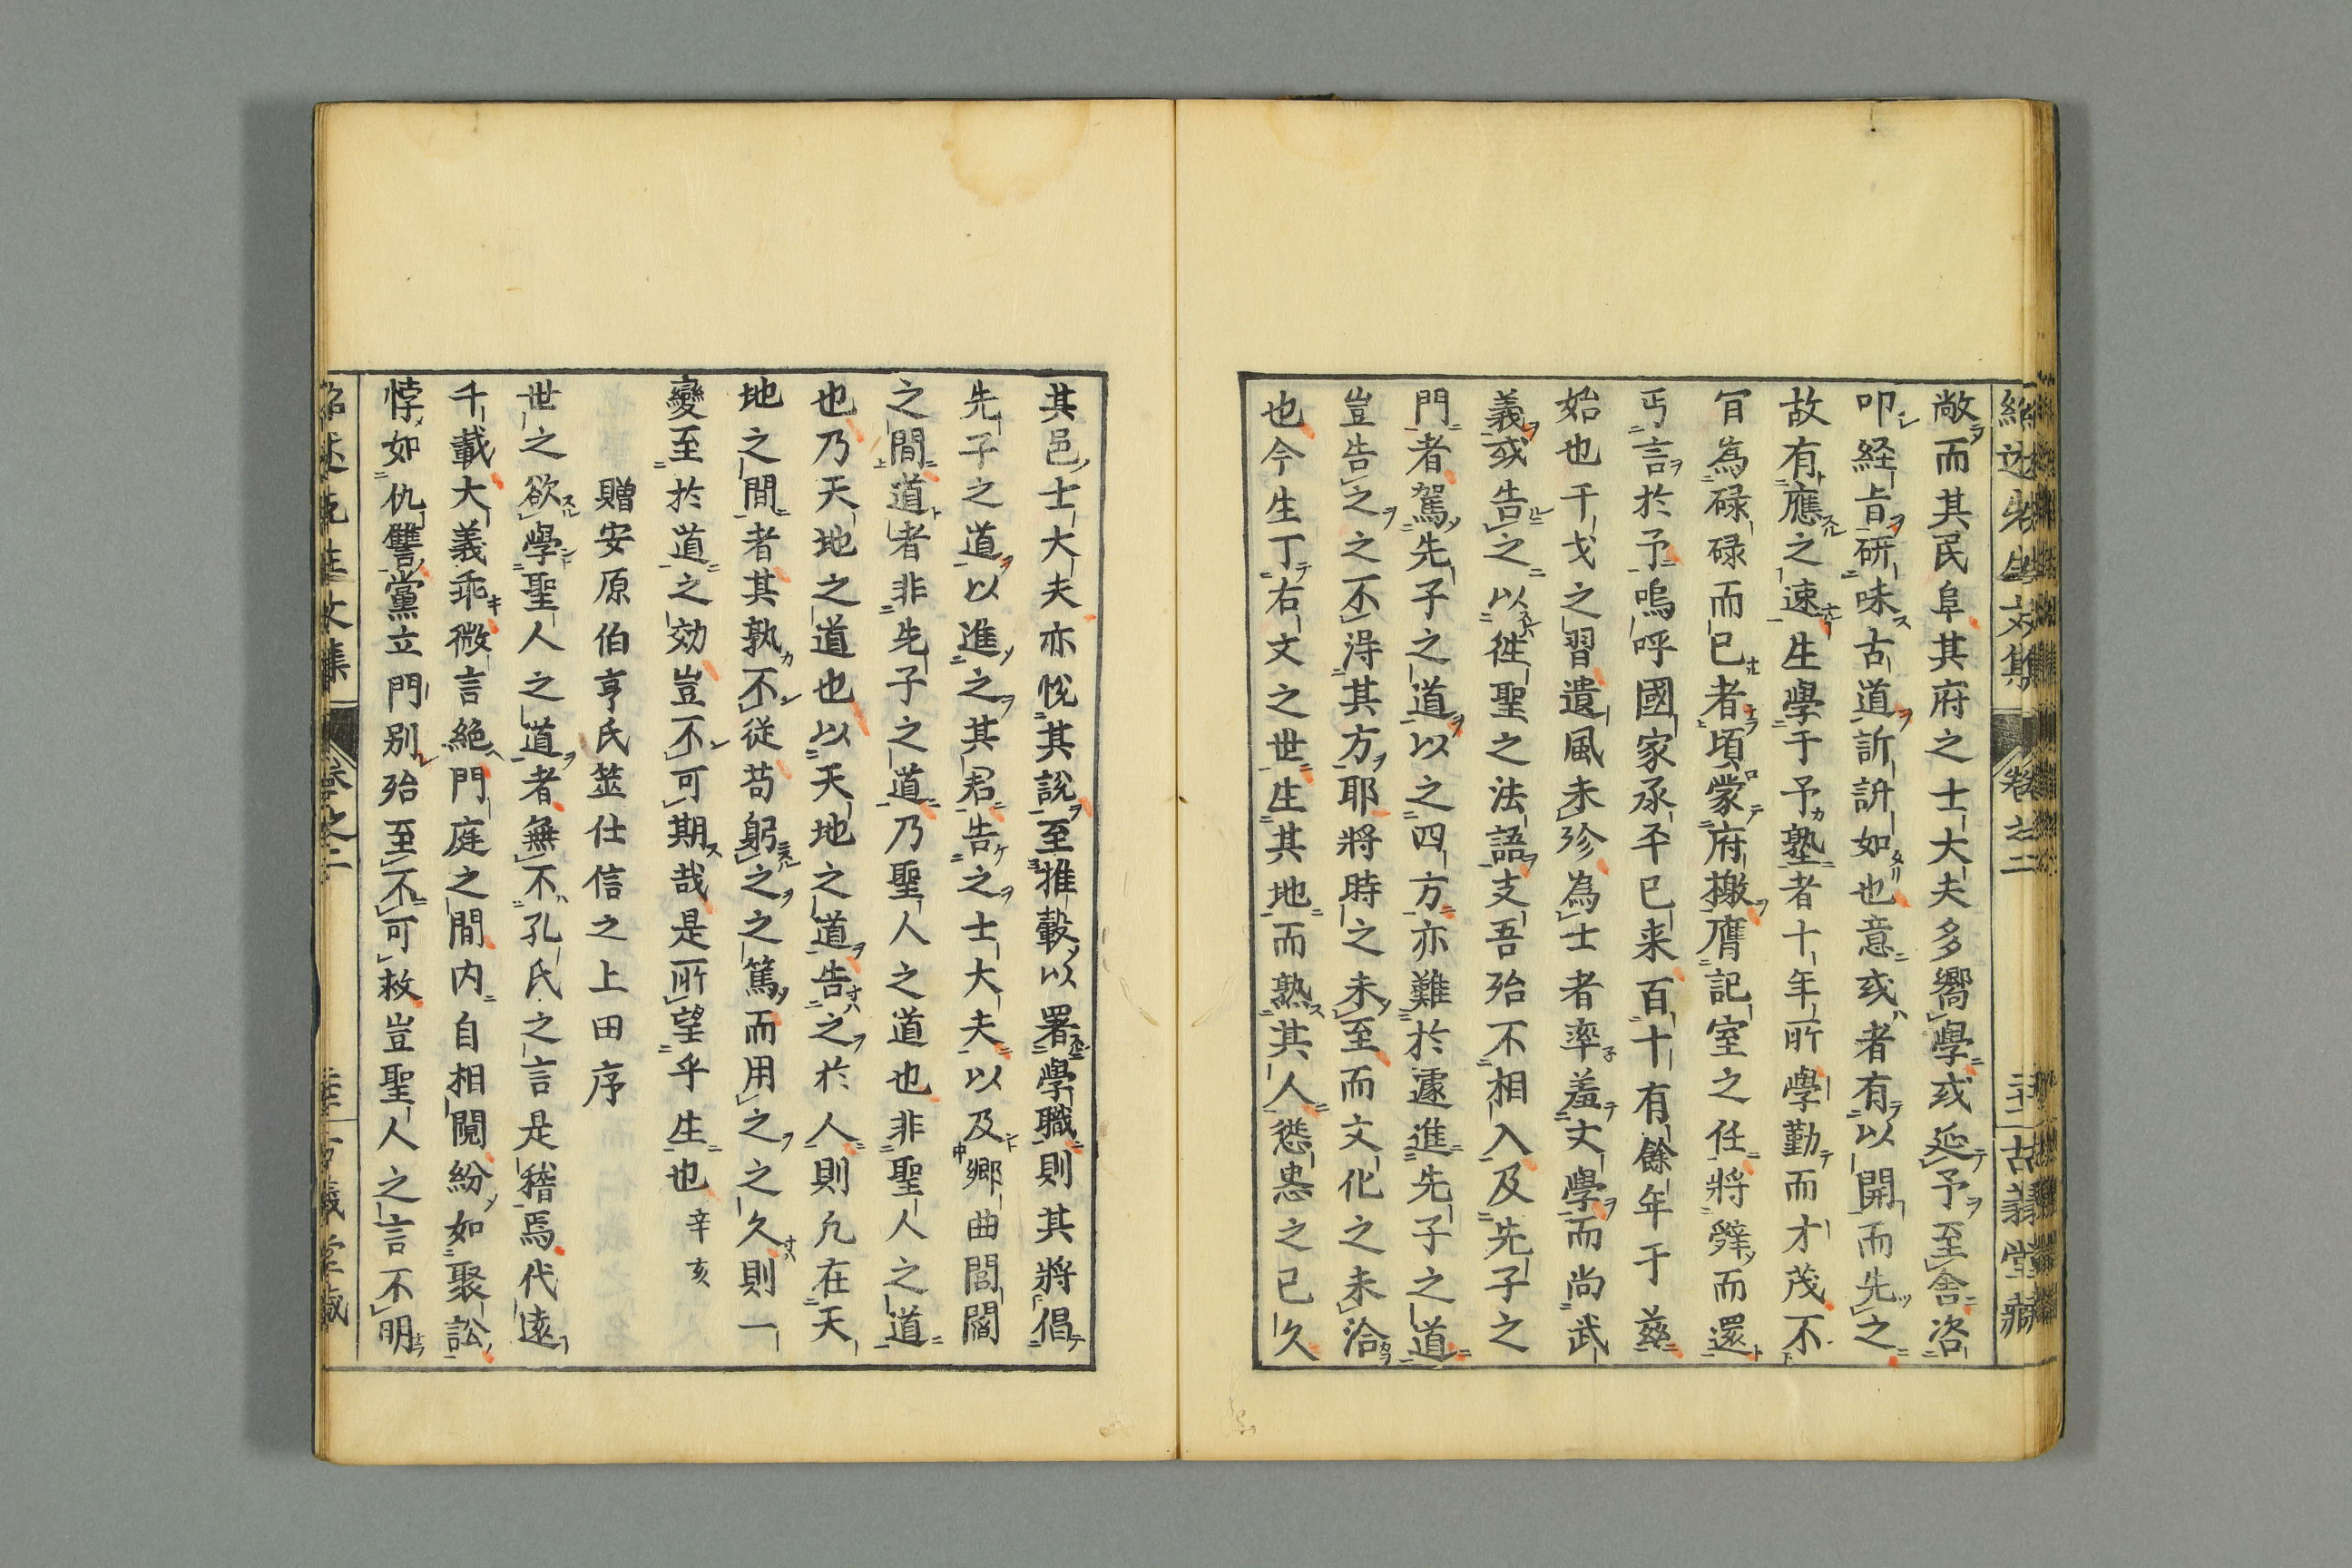 紹述先生文集 卷之二 古義堂藏
敞而其民阜其府之士大夫多嚮學或延予至舍咨
叩経旨研味古道訢訢如也意或者有以開而先之
故有應之速生學于予塾者十年所學勤而才茂不
肎為碌碌而已者頃蒙府檄膺記室之任將辤而還
丐言於予嗚呼國家承平已来百十有餘年于茲
始也干戈之習遺風未殄為士者率羞文學而尚武
義或告之以徃聖之法語支吾殆不相入及先子之
門者駕先子之道以之四方亦難於遽進先子之道
豈告之之不淂其方耶將時之未至而文化之未洽
也今生丁右文之世生其地而熟其人慫恿之已久
其邑士大夫亦悅其說至推轂以署學職則其將倡
先子之道以進之其君告之士大夫以及鄉曲閭閻
之間道者非先子之道乃聖人之道也非聖人之道
也乃天地之道也以天地之道告之於人則凢在天
地之間者其孰不從苟躬之之篤而用之之久則一
變至於道之効豈不可期哉是所望乎生也 辛亥
贈安原伯亨氏筮仕信之上田序
世之欲學聖人之道者無不孔氏之言是稽焉代遠
千載大義乖微言絶門庭之間内自相鬩紛如聚訟
悖如仇讐黨立門别殆至不可救豈聖人之言不明
紹述先生文集 卷之二 古義堂藏